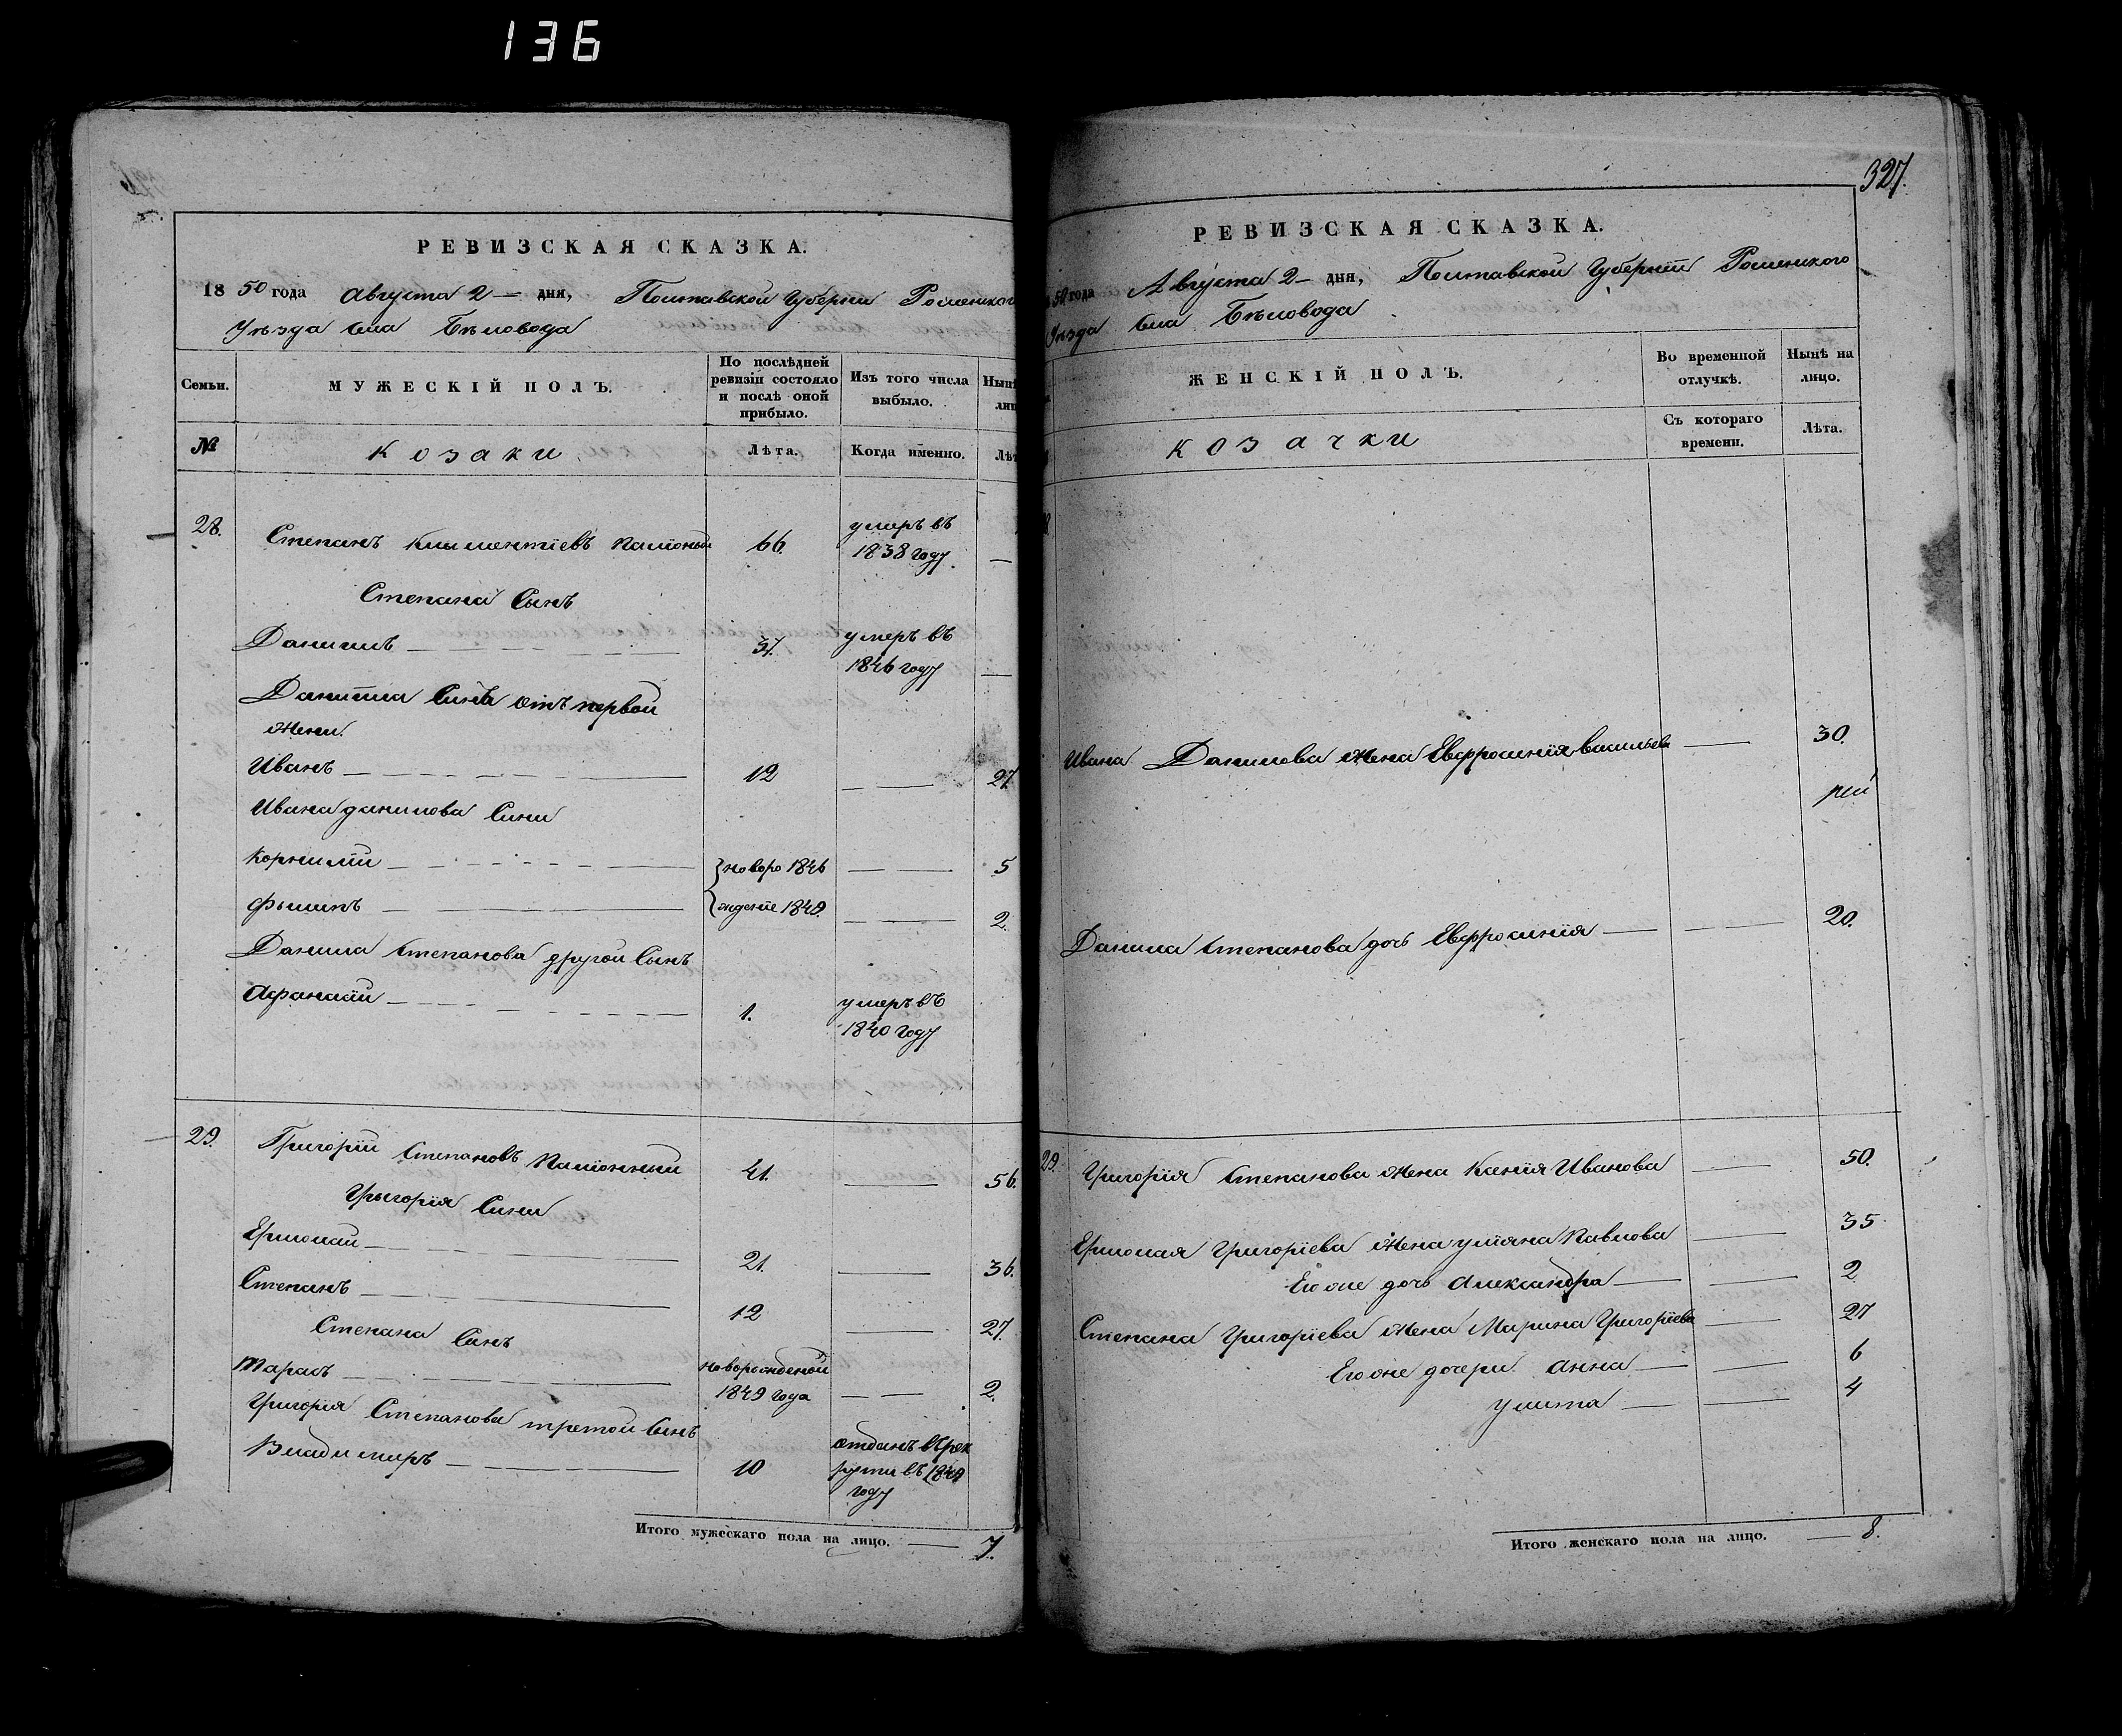 136
РЕВИЗСКАЯ СКАЗКА.
1850 года Августа 2 — дня, Полтавской Губернии Роменского
Уѣзда Села Бѣловода
Семьи.
МУЖЕСКІЙ ПОЛЪ.
По послѣдней ревизіи состояло и послѣ оной прибыло.
Изъ того числа выбыло.
№
козаки
Лѣта.
Когда именно.
28.
Степанъ Климентіевъ 66. умеръ въ
1838 году —
Степана Сынъ
Данилъ — 37. умеръ въ
1846 году —
Даниила Сынъ отъ первой
жени
Иванъ — 12 — 27.
Ивана данилова Сини
Корнилій — новоро 1846 — 5
Филипъ — ждение 1849. — 2.
Данила Степанова другой Сынъ
Афанасій — 1. умеръ въ
1840 году
29.
Григорій Степановъ 41. — 56.
Григорія Сини
Ермолай — 21. — 36.
Степанъ — 12 — 27.
Степана Синъ
Тарасъ — новорожденой
1849 года — 2.
Григорія Степанова третой Сынъ
Владимиръ — 10 отданъ въ рек
рути въ 1849
году
Итого мужескаго пола на лицо. — 7.
327.
РЕВИЗСКАЯ СКАЗКА.
50 года Августа 2 — дня, Полтавской Губерніи Роменского
Уѣзда Села Бѣловода
ЖЕНСКІЙ ПОЛЪ.
Во временной отлучкѣ.
Нынѣ на лицо.
козачки
Съ котораго времени.
Лѣта.
Ивана Данилова жена Евфросинія васильева — 30.
Данила Степанова дочь Евфросинія — 20.
29. Григорія Степанова жена Ксенія Иванова — 50.
Ермолая Григоріева жена уліяна Павлова — 35
Его же дочь Александра — 2
Степана Григоріева жена Марина Григоріева — 27
Его же дочери Анна — 6
улита — 4
Итого женскаго пола на лицо. — 8.